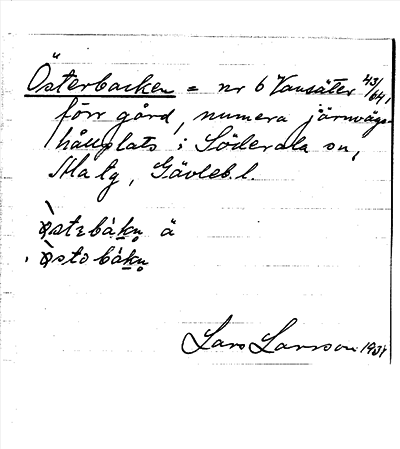 Österbacken = nr 6 Vansäter 43/64,
förr gård, numera järnvägs-
hållplats i Söderala sn,
Ala tg, Gävleb. l.
ästəbàkn̥ ä
Lars Larsson 1931